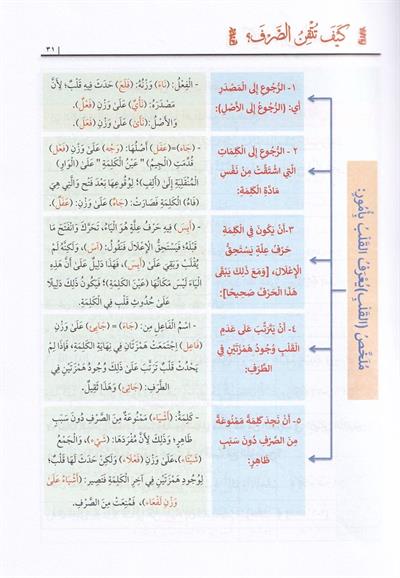 كَيْفَ تُتْقِنُ الصَّرْفَ؟
٣١
مُلَخَّصُ (القَلْبِ) يُعْرَفُ القَلْبُ بِأُمُورٍ:
١- الرُّجُوعُ إِلَى المَصْدَرِ
أي: (الرُّجُوعُ إِلَى الأَصْلِ):
- الْفِعْلُ: (نَاءَ) وَزْنُهُ: (فَلَعَ) حَدَثَ فِيهِ قَلْبٌ؛ لِأَنَّ
مَصْدَرَهُ: (نَأْيٌ) عَلَىٰ وَزْنِ (فَعْلٌ).
وَالأَصْلُ: (نَأَىٰ) عَلَىٰ وَزْنِ (فَعَلَ).
٢- الرُّجُوعُ إِلَى الكَلِمَاتِ
الَّتِي اشْتُقَّتْ مِنْ نَفْسِ
مَادَّةِ الكَلِمَةِ:
- (جَاه)=(عَفَل) أَصْلُهَا: (وَجْه) عَلَىٰ وَزْنِ (فَعْل)
قُدِّمَتِ (الْجِيمُ) "عَيْنُ الْكَلِمَةِ" عَلَىٰ (الْوَاوِ)
(الْمُنْقَلِبَةِ إِلَىٰ (أَلِفٍ)؛ لِوُقُوعِهَا بَعْدَ فَتْحٍ وَالَّتِي هِيَ
(فَاءُ) الْكَلِمَةِ فَصَارَتْ: (جَاه) عَلَىٰ وَزْنِ: (عَفَل).
٣-أَنْ يَكُونَ فِي الكَلِمَةِ
حَرْفُ عِلَّةٍ يَسْتَحِقُّ
الإِعْلَالَ، [وَمَعَ ذَلِكَ يَبْقَى
هَذَا الحَرْفُ صَحِيحًا]:
- (أَيِسَ) فِيهِ حَرْفُ عِلَّةٍ هُوَ الْيَاءُ، تَحَرَّكَ وَانْفَتَحَ مَا
قَبْلَهُ؛ فَيَسْتَحِقُّ الْإِعْلَالَ فَتَقُولُ: (آسَ)، وَلَكِنَّهُ لَمْ
يُقْلَبْ وَبَقِيَ عَلَىٰ (أَيِسَ)، فَهَذَا دَلِيلٌ عَلَىٰ أَنَّ هَذِهِ
الْيَاءَ لَيْسَ مَكَانَهَا (عَيْنُ الْكَلِمَةِ)؛ فَيَكُونُ ذَلِكَ دَلِيلًا
عَلَىٰ حُدُوثِ قَلْبٍ فِي الْكَلِمَةِ.
٤- أَنْ يَتَرَتَّبَ عَلَى عَدَمِ
القَلْبِ وُجُودُ هَمْزَتَيْنِ فِي
الطَّرَفِ:
- اسْمُ الْفَاعِلِ مِنْ: (جَاءَ) = (جَائِي) عَلَىٰ وَزْنِ
(فَاعِل) اجْتَمَعَتْ هَمْزَتَانِ فِي نِهَايَةِ الْكَلِمَةِ، فَإِذَا لَمْ
يَحْدُثْ قَلْبٌ تَرَتَّبَ عَلَىٰ ذَلِكَ وُجُودُ هَمْزَتَيْنِ فِي
الطَّرَفِ: (جَائِئ) وَهَذَا ثَقِيلٌ.
٥- أَنْ نَجِدَ كَلِمَةً مَمْنُوعَةً
مِنَ الصَّرْفِ دُونَ سَبَبٍ
ظَاهِرٍ:
- كَلِمَةُ: (أَشْيَاءَ) مَمْنُوعَةٌ مِنَ الصَّرْفِ دُونَ سَبَبٍ
ظَاهِرٍ؛ وَذَلِكَ لِأَنَّ مُفْرَدَهَا: (شَيْء)، وَالْجَمْعُ
(شَيْئَاء)،عَلَىٰ وَزْنِ (فَعْلَاء) وَلَكِنْ حَدَثَ لَهَا قَلْبٌ؛
لِوُجُودِ هَمْزَتَيْنِ فِي آخِرِ الْكَلِمَةِ فَتَصِيرُ: (أَشْيَاءُ عَلَىٰ
وَزْنِ لَفْعَاء)، فَمُنِعَتْ مِنَ الصَّرْفِ.